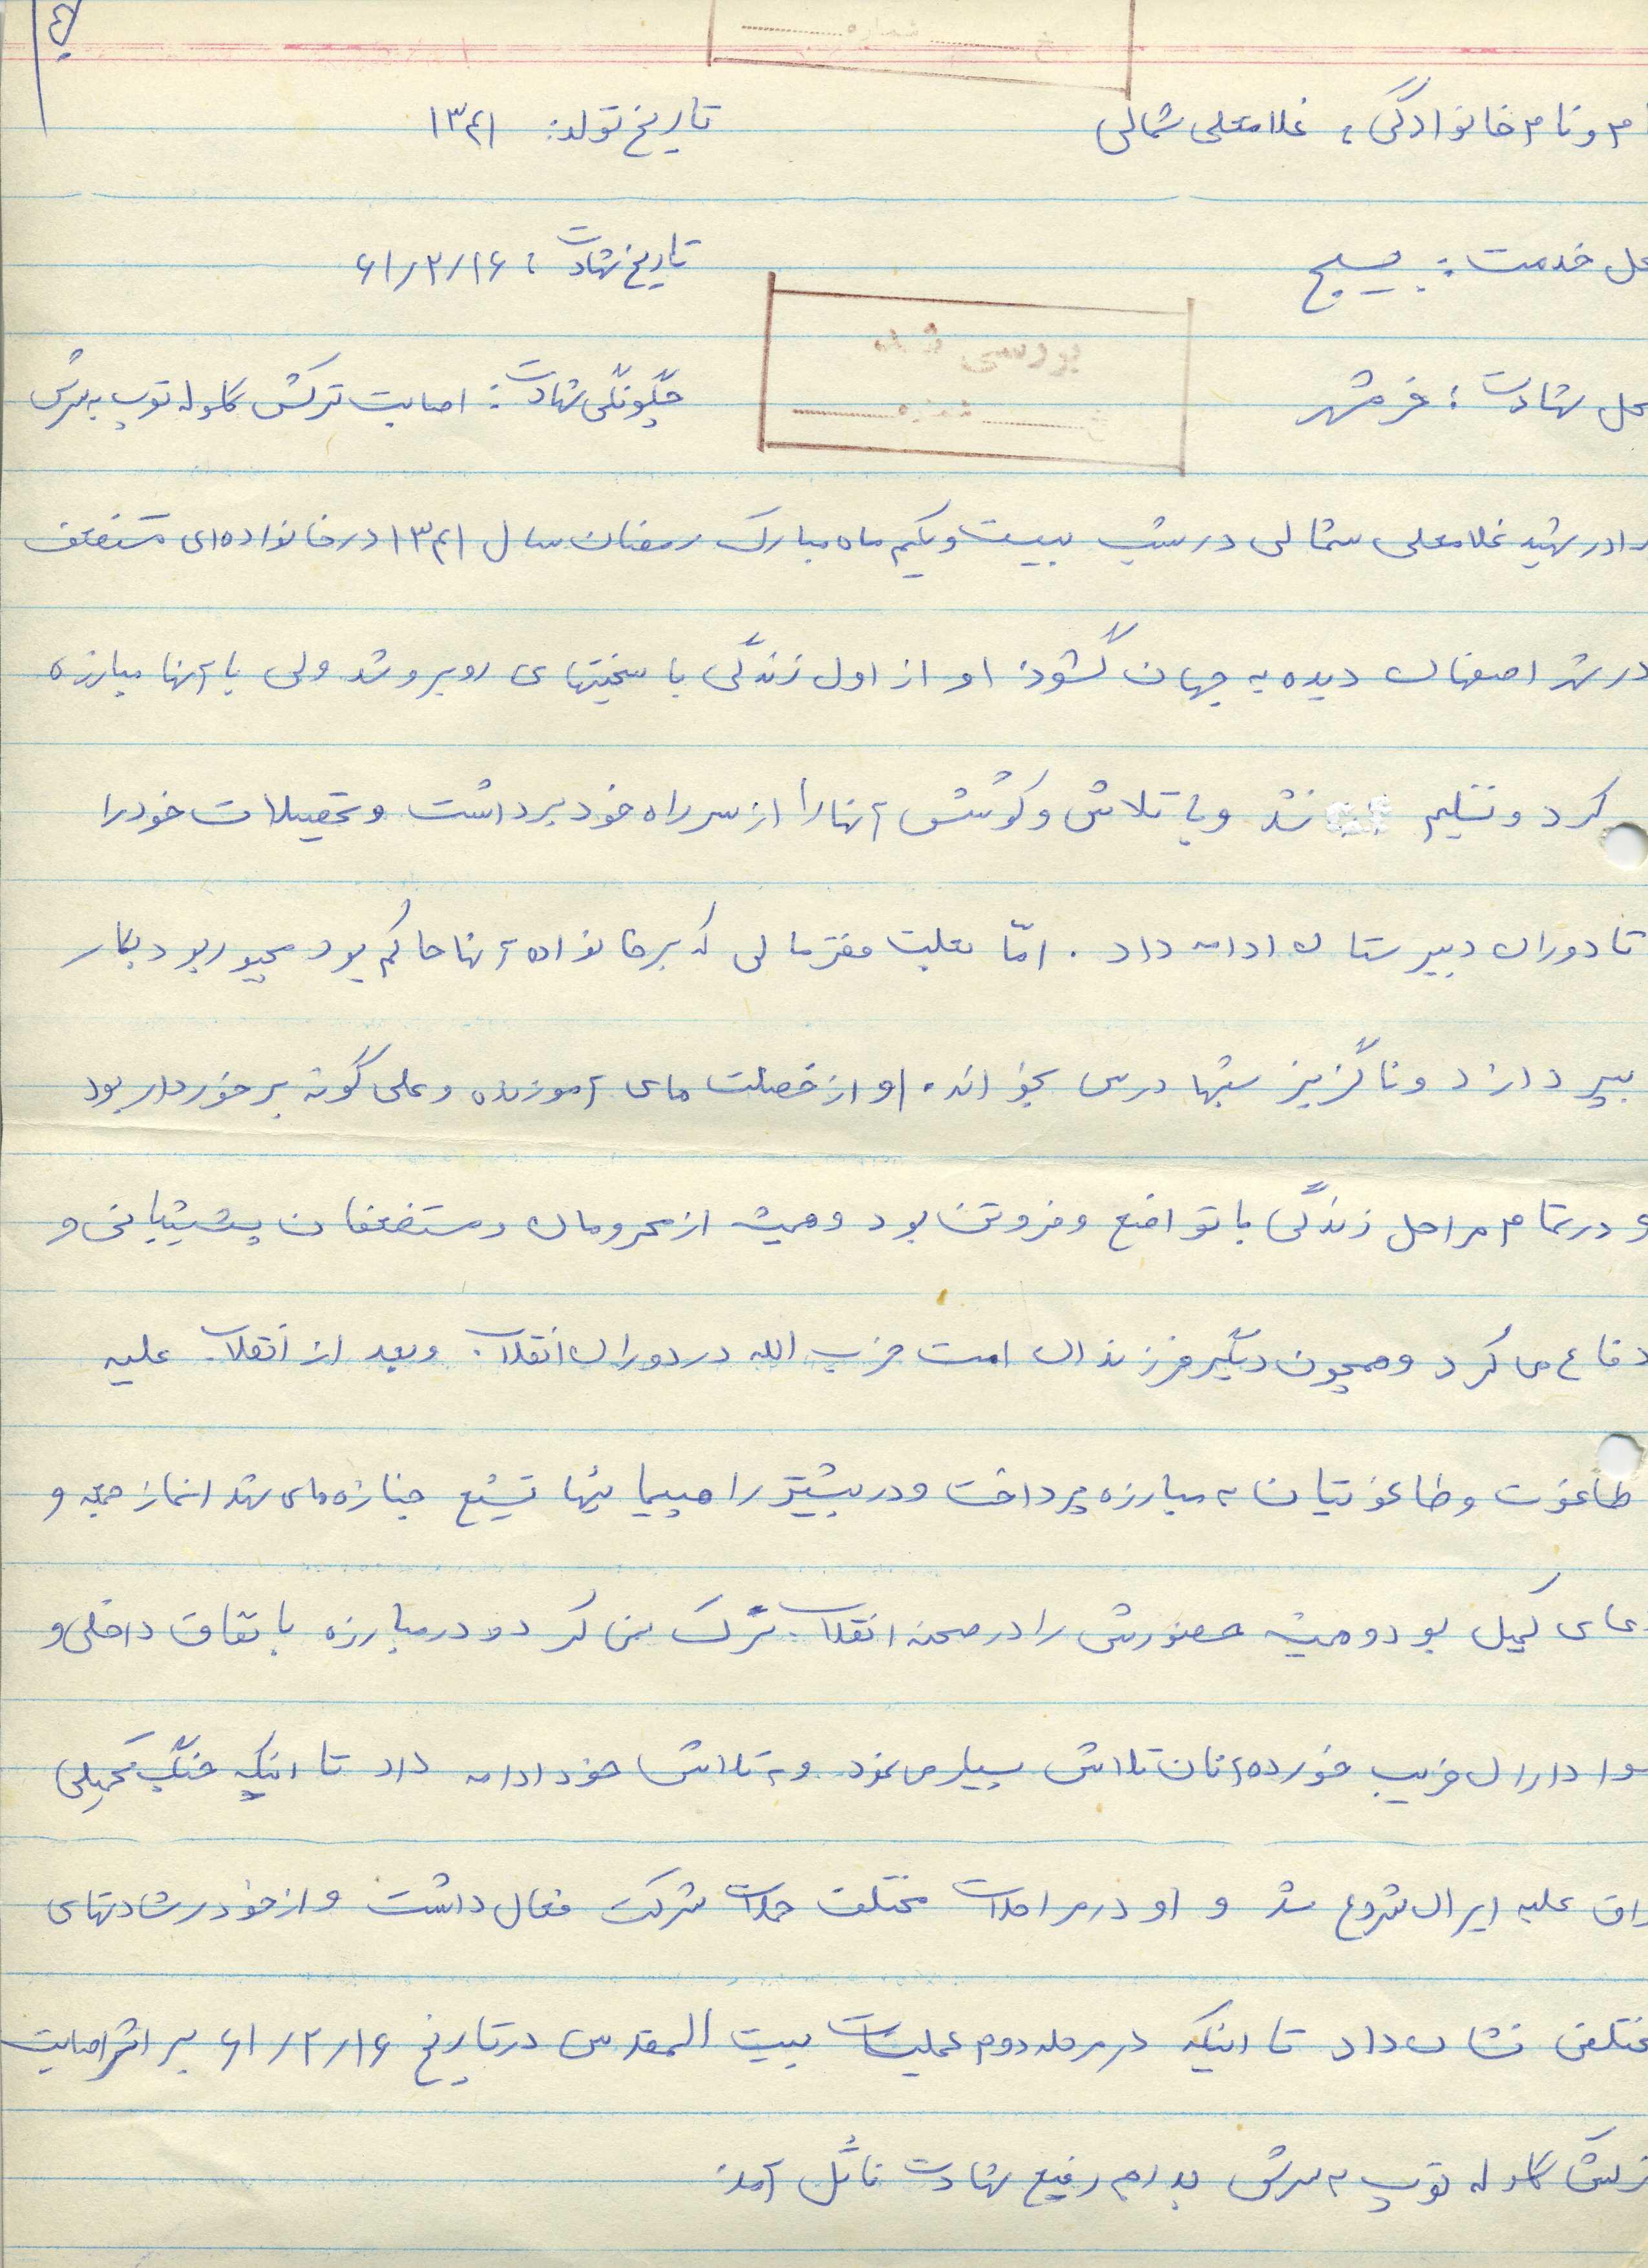 شماره
ام و نام خانوادگی: غلامعلی شمالی تاریخ تولد: ۱۳۴۱
حل خدمت: بسیج تاریخ شهادت: ۶۱/۲/۱۶
بررسی شد
حل شهادت: خرمشهر چگونگی شهادت: اصابت ترکش گلوله توپ به سرش
شماره
رادر شهید غلامعلی شمالی در شب بیست و یکم ماه مبارک رمضان سال ۱۳۴۱ در خانواده‌ای مستضعف
در شهر اصفهان دیده به جهان گشود او از اول زندگی با سختیهای روبرو شد ولی با آنها مبارزه
کرد و تسلیم نشد و با تلاش و کوشش آنها را از سر راه خود برداشت و تحصیلات خود را
تا دوران دبیرستان ادامه داد. امّا بعلت فقر مالی که بر خانواده آنها حاکم بود مجبور بود بکار
بپردازد و ناگزیز شبها درس بخواند. او از خصلت های آموزنده و علی گونه برخوردار بود
و در تمام مراحل زندگی با تواضع و فروتن بود و همیشه از محرومان و مستضعفان پشتیبانی و
دفاع می کرد و همچون دیگر فرزندان امت حزب الله در دوران انقلاب و بعد از انقلاب علیه
طاغوت و طاغوتیان به مبارزه پرداخت و در بیشتر راهپیمائیها تشیع جنازه های شهدا نماز جمعه و
دعای کمیل بود و همیشه حضورش را در صحنه انقلاب ترک نمی کرد و در مبارزه با نفاق داخلی و
هوا داران فریب خورده آنان تلاش بسیار می نمود و به تلاش خود ادامه داد تا اینکه جنگ تحمیلی
راق علیه ایران شروع شد و او در مراحلات مختلف حملات شرکت فعال داشت و از خود رشادتهای
ختلفی نشان داد تا اینکه در مرحله دوم عملیات بیت المقدس در تاریخ ۶۱/۲/۱۶ بر اثر اصابت
ترکش گلوله توپ به سرش بدرجه رفیع شهادت نائل آمد.